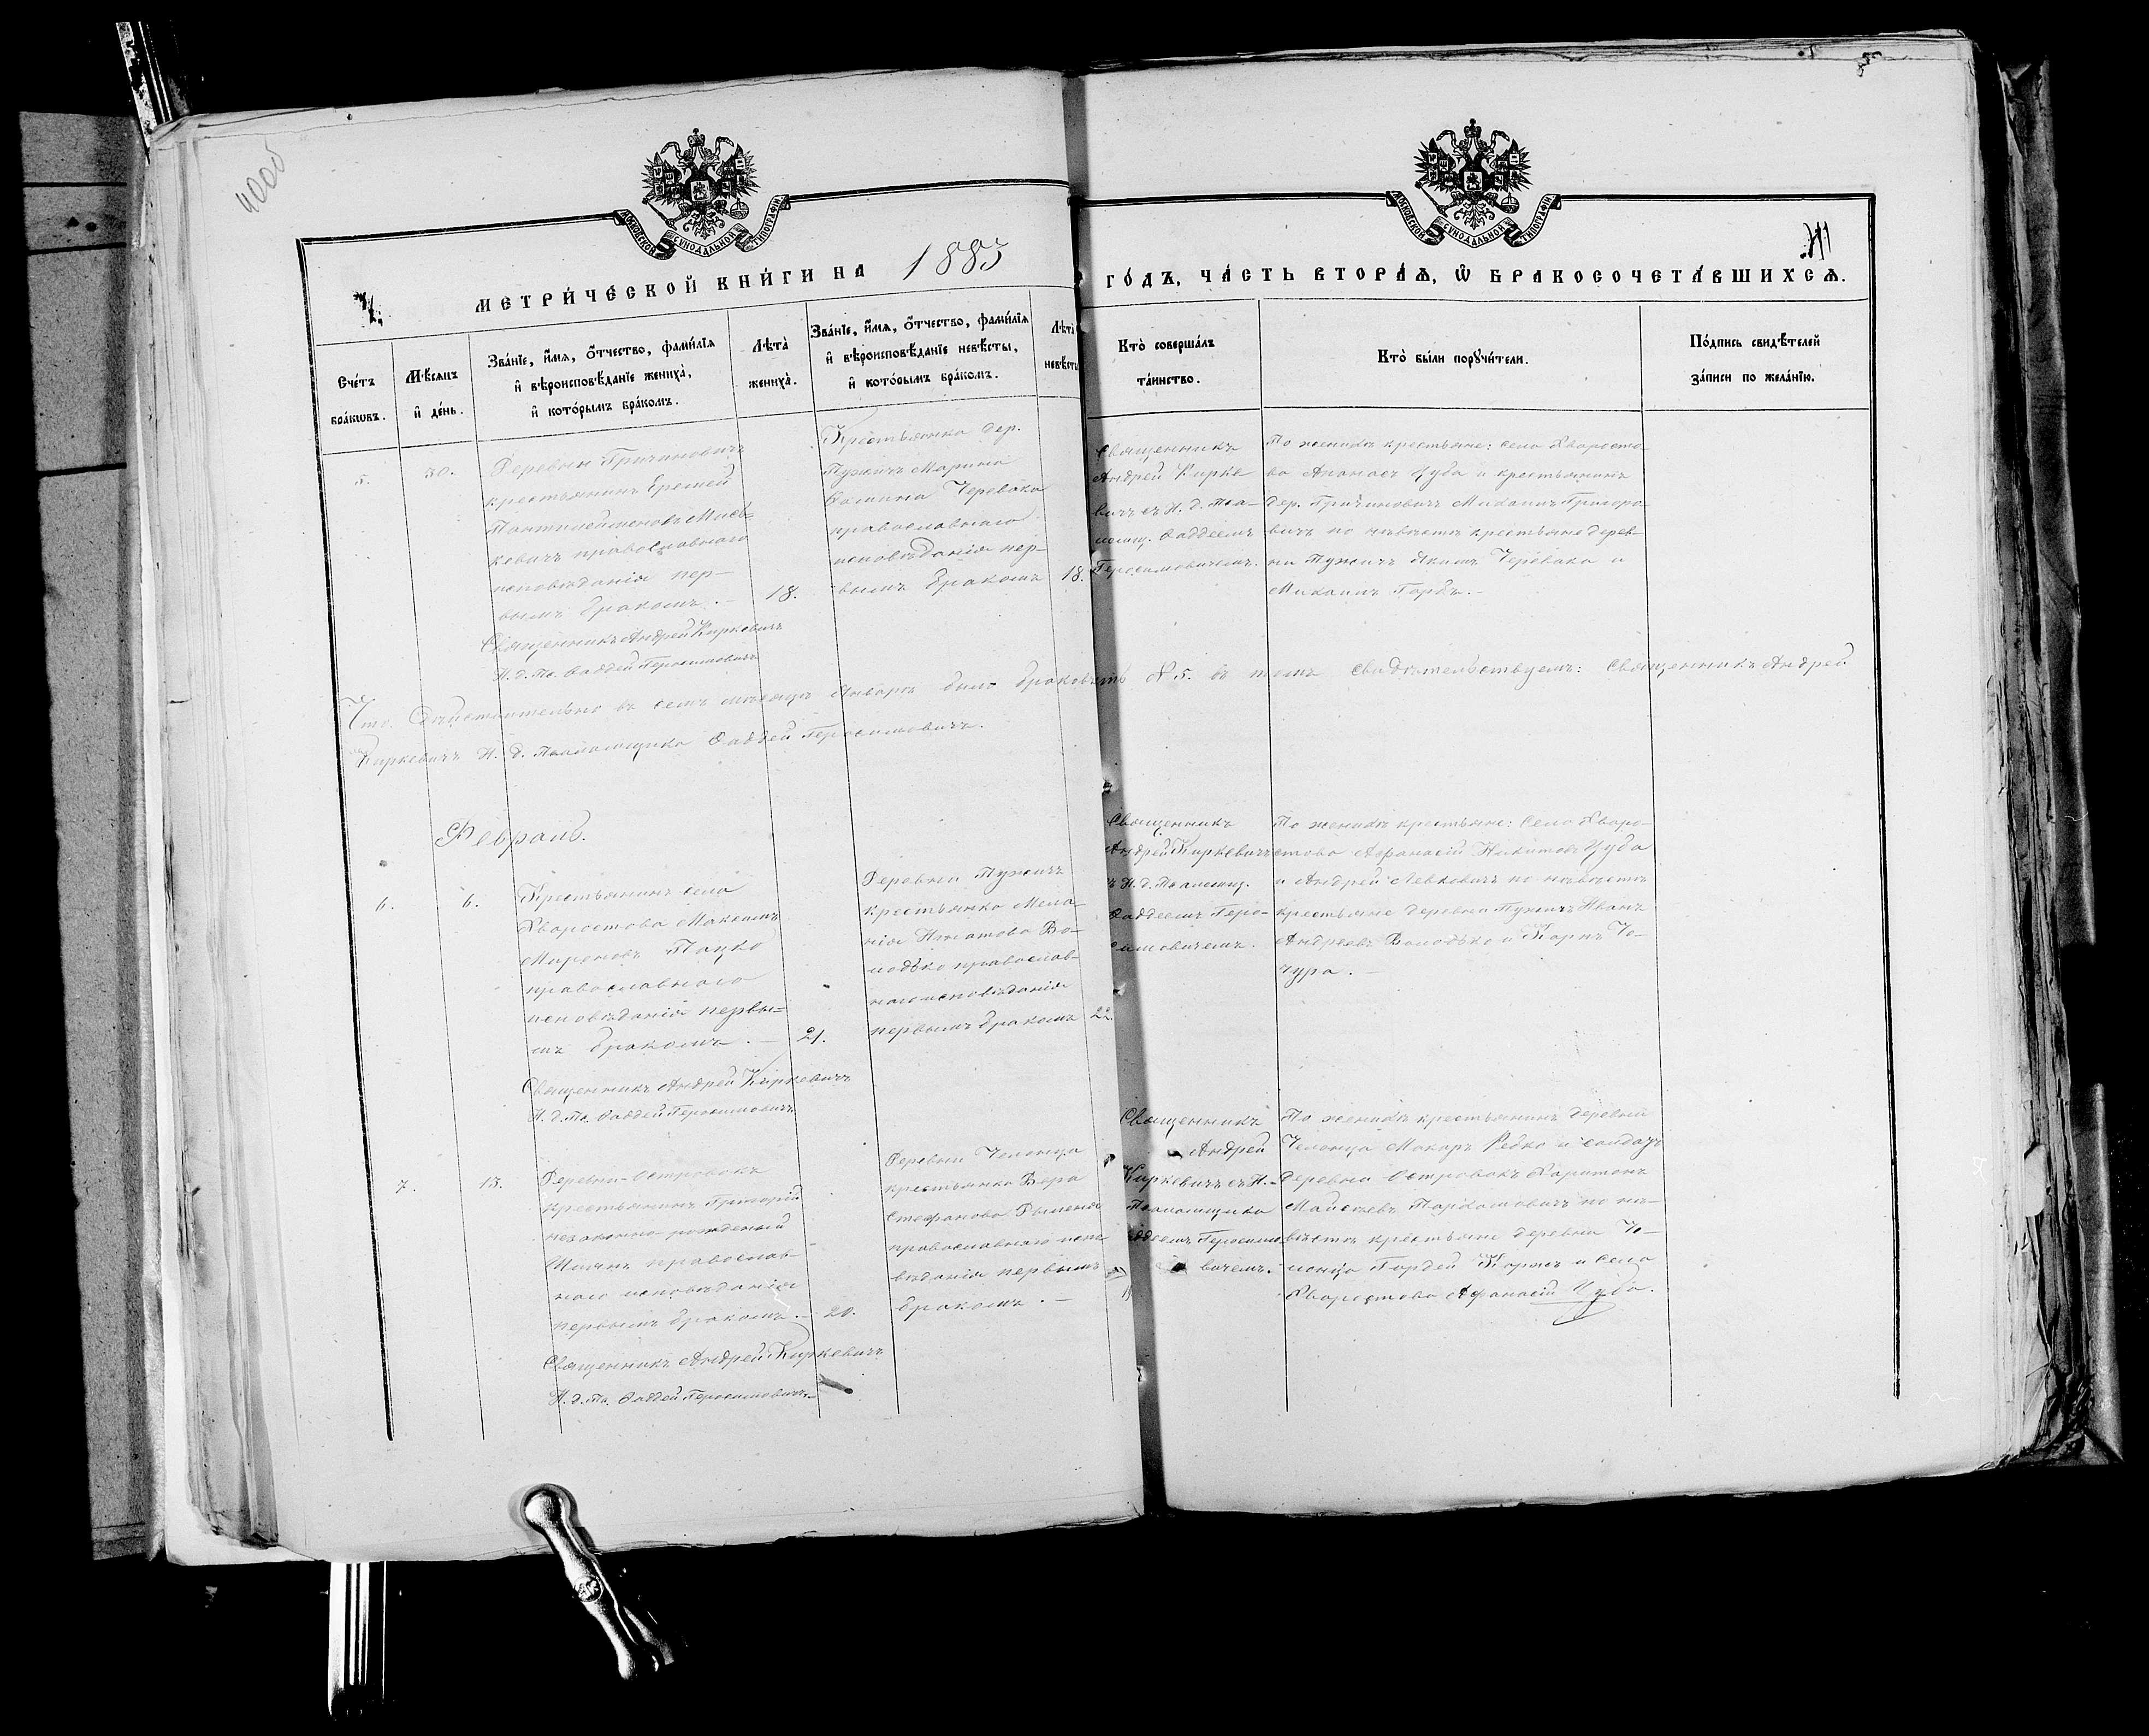 МОСКОВСКОЙ СУНОДАЛЬНОЙ ТИПОГРАФІИ
МОСКОВСКОЙ СУНОДАЛЬНОЙ ТИПОГРАФІИ
МЕТРИ́ЧЕСКОЙ КНИ́ГИ НА 1883 ГО́ДЪ, ЧА́СТЬ ВТОРА́Ѧ, Ѿ БРАКОСОЧЕТА́ВШИХСѦ.
Сче́тъ
бра́кѡвъ.
Мѣ́сѧцъ
и҆ де́нь.
Зва́нїе, и҆́мѧ, ѻ҆́тчество, фами́лїѧ
и҆ вѣроисповѣ́данїе жениха̀,
и҆ кото́рымъ бра́комъ.
Лѣ́та̀
жениха̀.
Зва́нїе, и҆́мѧ, ѻ҆́тчество, фами́лїѧ
и҆ вѣроисповѣ́данїе невѣ́сты,
и҆ кото́рымъ бра́комъ.
Лѣта̀
невѣ́сты
Кто̀ соверша́лъ
та́инство.
Кто̀ бы́ли порꙋчи́тели.
По́дпись свидѣ́телей
за́писи по жела́нїю.
5.
30.
Деревни Гричиновичъ
крестьянинъ Еремей
Пантилеймоновъ Мись-
кевичъ православнаго
исповѣданія пер-
вымъ бракомъ. —
18.
Священникъ Андрей Киркевичъ
И. д. Пс. Фаддей Герасимовичъ
Крестьянка дер.
Пужичъ Марина
Фомина Черевака
православнаго
исповѣданія пер-
вымъ бракомъ
18.
Священникъ
Андрей Кирке
вичъ съ И. д. Пса-
ломщ. Фаддеемъ
Герасимовичемъ.
По женихѣ крестьяне: села Хваросто
ва Апанасъ Цуба и крестьянинъ
дер. Гричиновичъ Михаилъ Григоро
вичъ по невѣстѣ крестьяне дерев-
ни Пужичъ Якимъ Черевака и
Михаилъ Горбъ. —
Что дѣйствительно въ семъ мѣсяцѣ Январѣ было браковъ № 5. въ томъ свидѣтельствуемъ: Священникъ Андрей
Киркевичъ И. д. Псаломщика Фаддей Герасимовичъ.
Февраль.
6.
6.
Крестьянинъ села
Хваростова Максимъ
Мироновъ Пацко
православнаго
исповѣданія первы-
мъ бракомъ. —
21.
Священникъ Андрей Киркевичъ
И. д. Пс. Фаддей Герасимовичъ
Деревни Пужичъ
крестьянка Мела-
нія Игнатова Во-
лодько православ-
наго исповѣданія
первымъ бракомъ
22.
Священникъ
Андрей Киркевичъ
ъ И. д. Псаломщ.
Фаддеемъ Гера-
симовичемъ.
По женихѣ крестьяне: села Хваро-
стова Афанасій Никитовъ Цуба
и Андрей Левкевичъ по невѣстѣ
крестьяне деревни Пужичъ Иванъ
Андреевъ Володько и Карпъ Чо-
чура. —
7.
13.
Деревни Островокъ
крестьянинъ Григорій
незаконно рожденый
православ-
наго исповѣданія
первымъ бракомъ. —
20.
Священникъ Андрей Киркевичъ
И. д. Пс. Фаддей Герасимовичъ
Деревни Челонца
крестьянка Вера
Стефанова
православнаго испо
вѣданія первымъ
бракомъ. —
Священникъ
Андрей
Киркевичъ съ И. —
Псаломщика
аддеемъ Герасимо
вичемъ.
По женихѣ крестьянинъ деревни
Челонца Макаръ Редко и солдатъ
деревни Островокъ Харитонъ
Пархомовичъ по не-
вѣстѣ крестьяне деревни Че-
лонца Гордей Коржъ и села
Хваростова Афанасій Цуба.